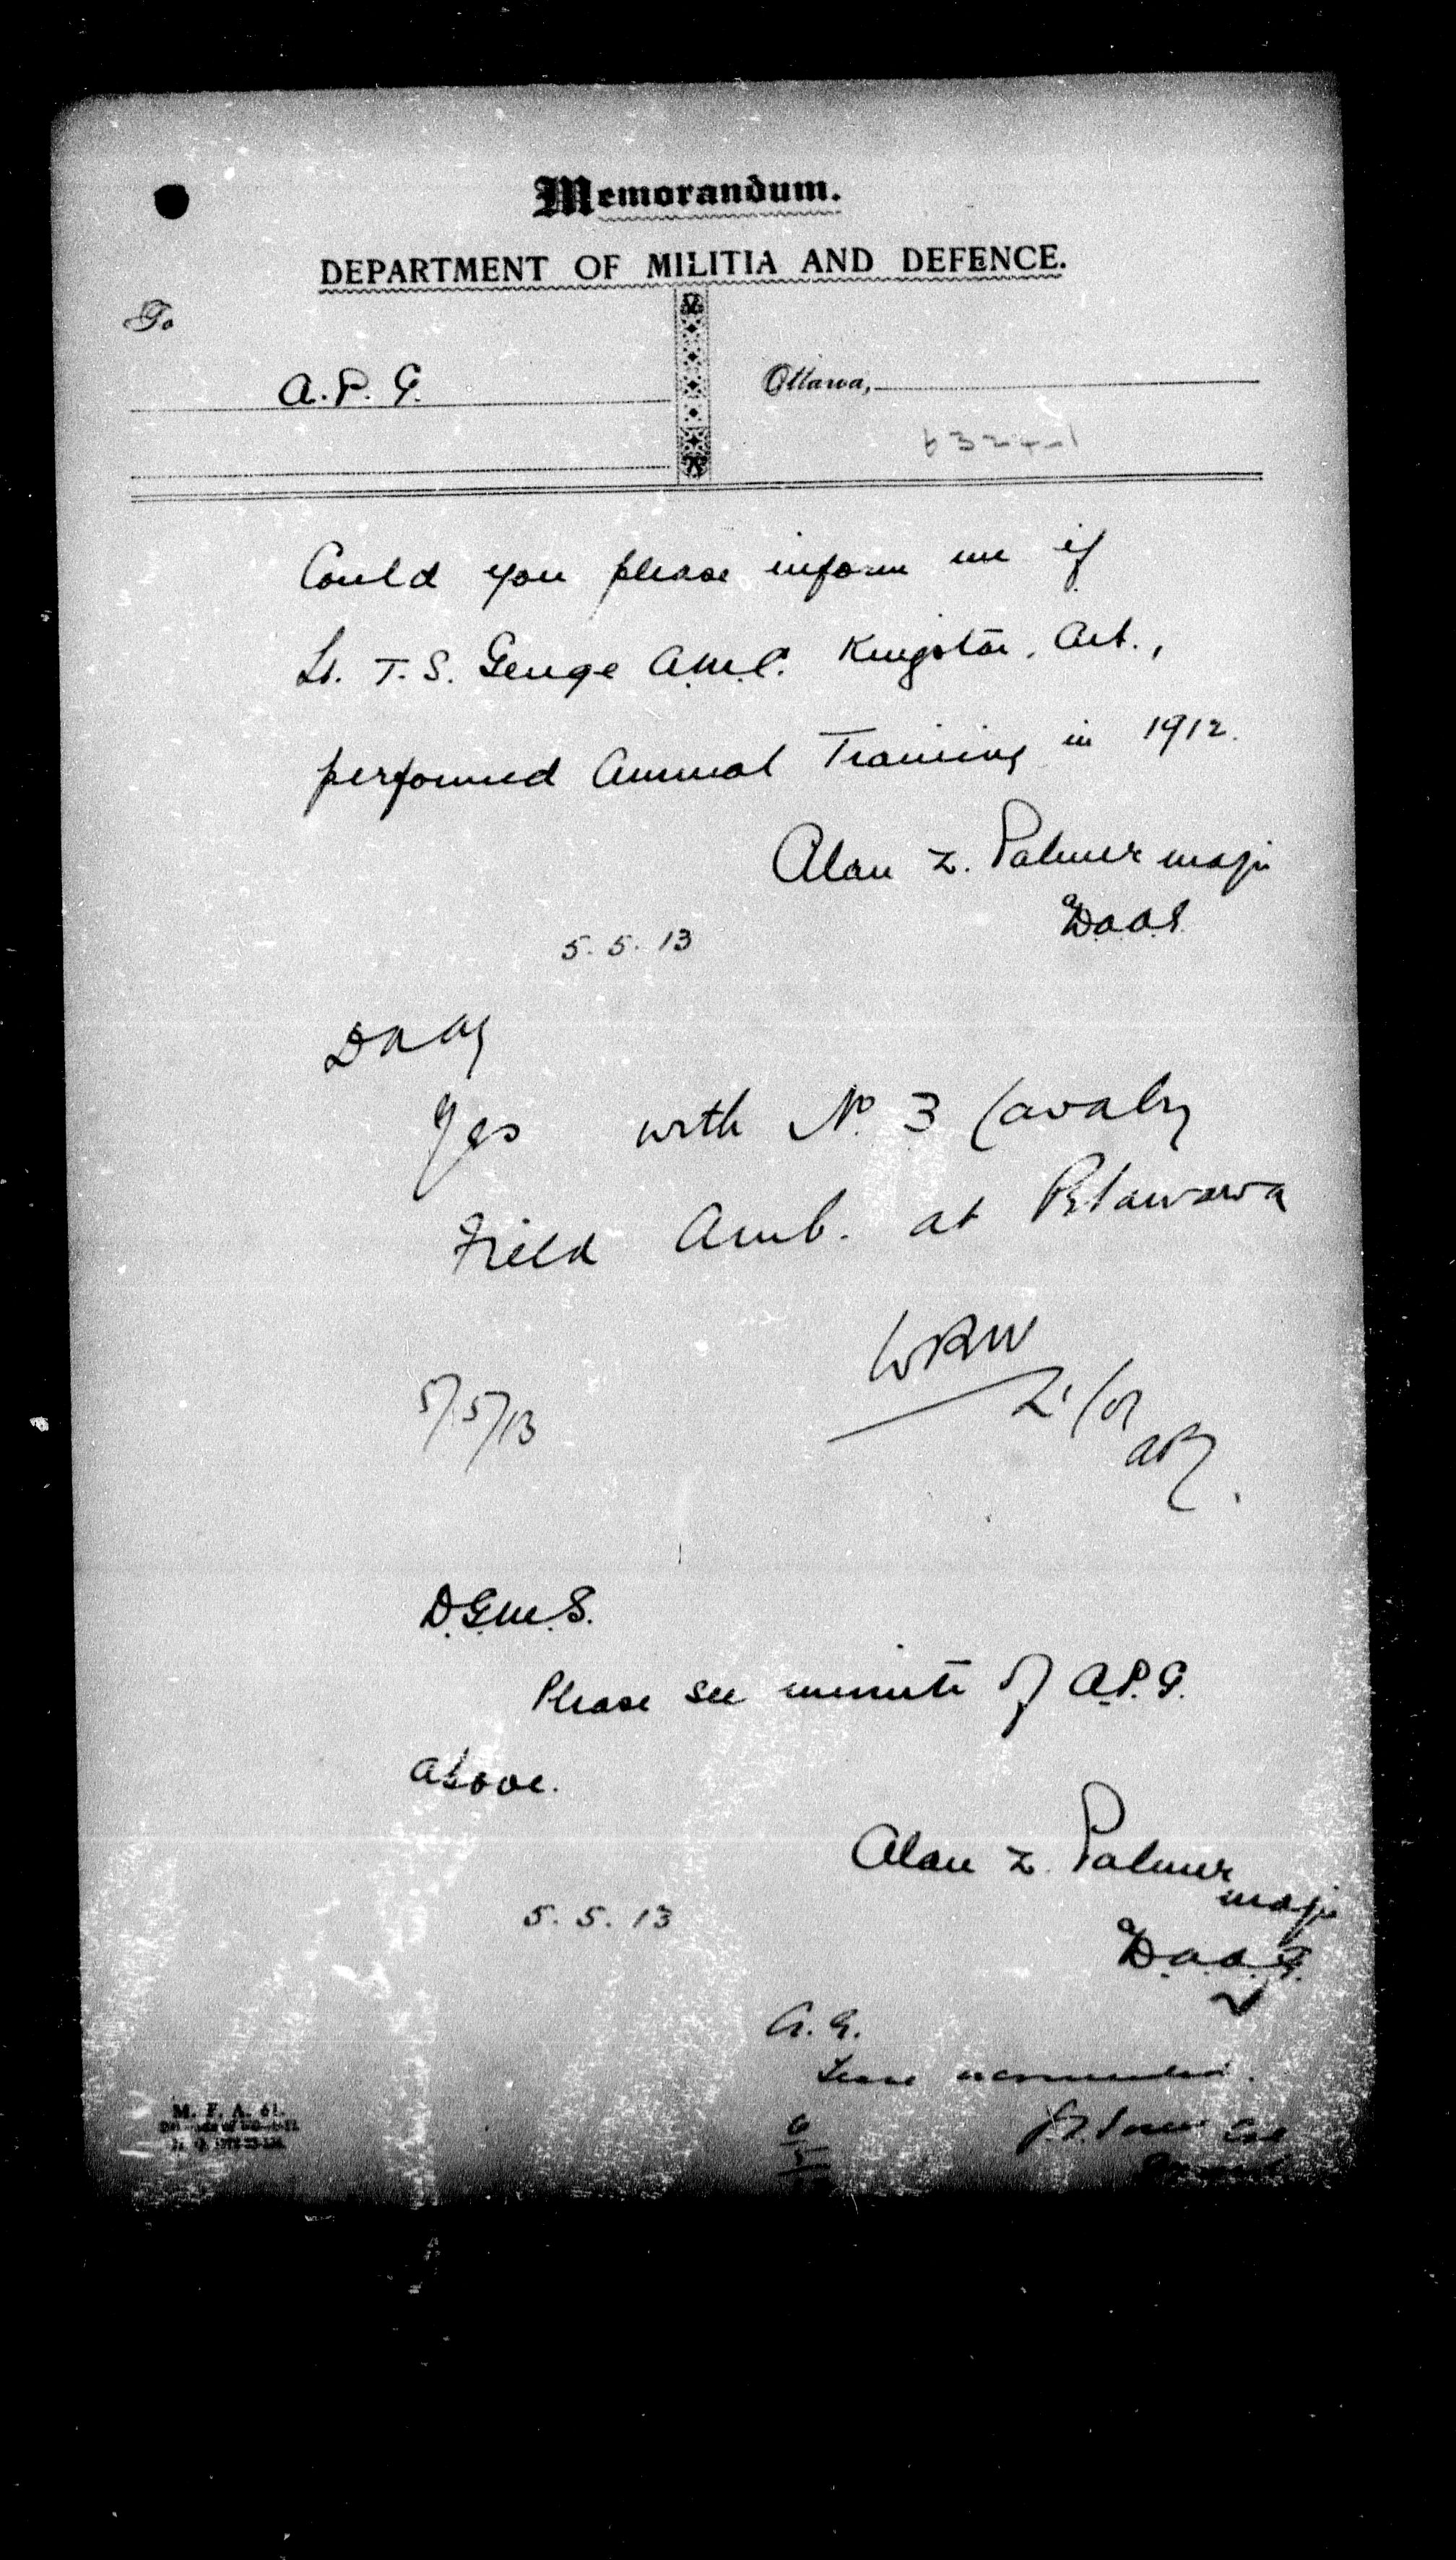 Memorandum.
DEPARTMENT OF MILITIA AND DEFENCE.
To
A. P. G.
Ottawa,
6324-1
Could you please inform me if
Lt. T. S. Genge A.M.C. Kingston, Ont.,
performed Annual Training in 1912.
Alan Z. Palmer Major
D.A.A.G.
5. 5. 13
DAAG
Yes with No. 3 Cavalry
Field Amb. at Petawawa
WRW
Lt. for
APG.
5/5/13
D.G.M.S.
Please see minute of A.P.G.
above.
Alan Z. Palmer
Major
D.A.A.G.
5. 5. 13
A. G.
recommended.
M. F. A. 61.